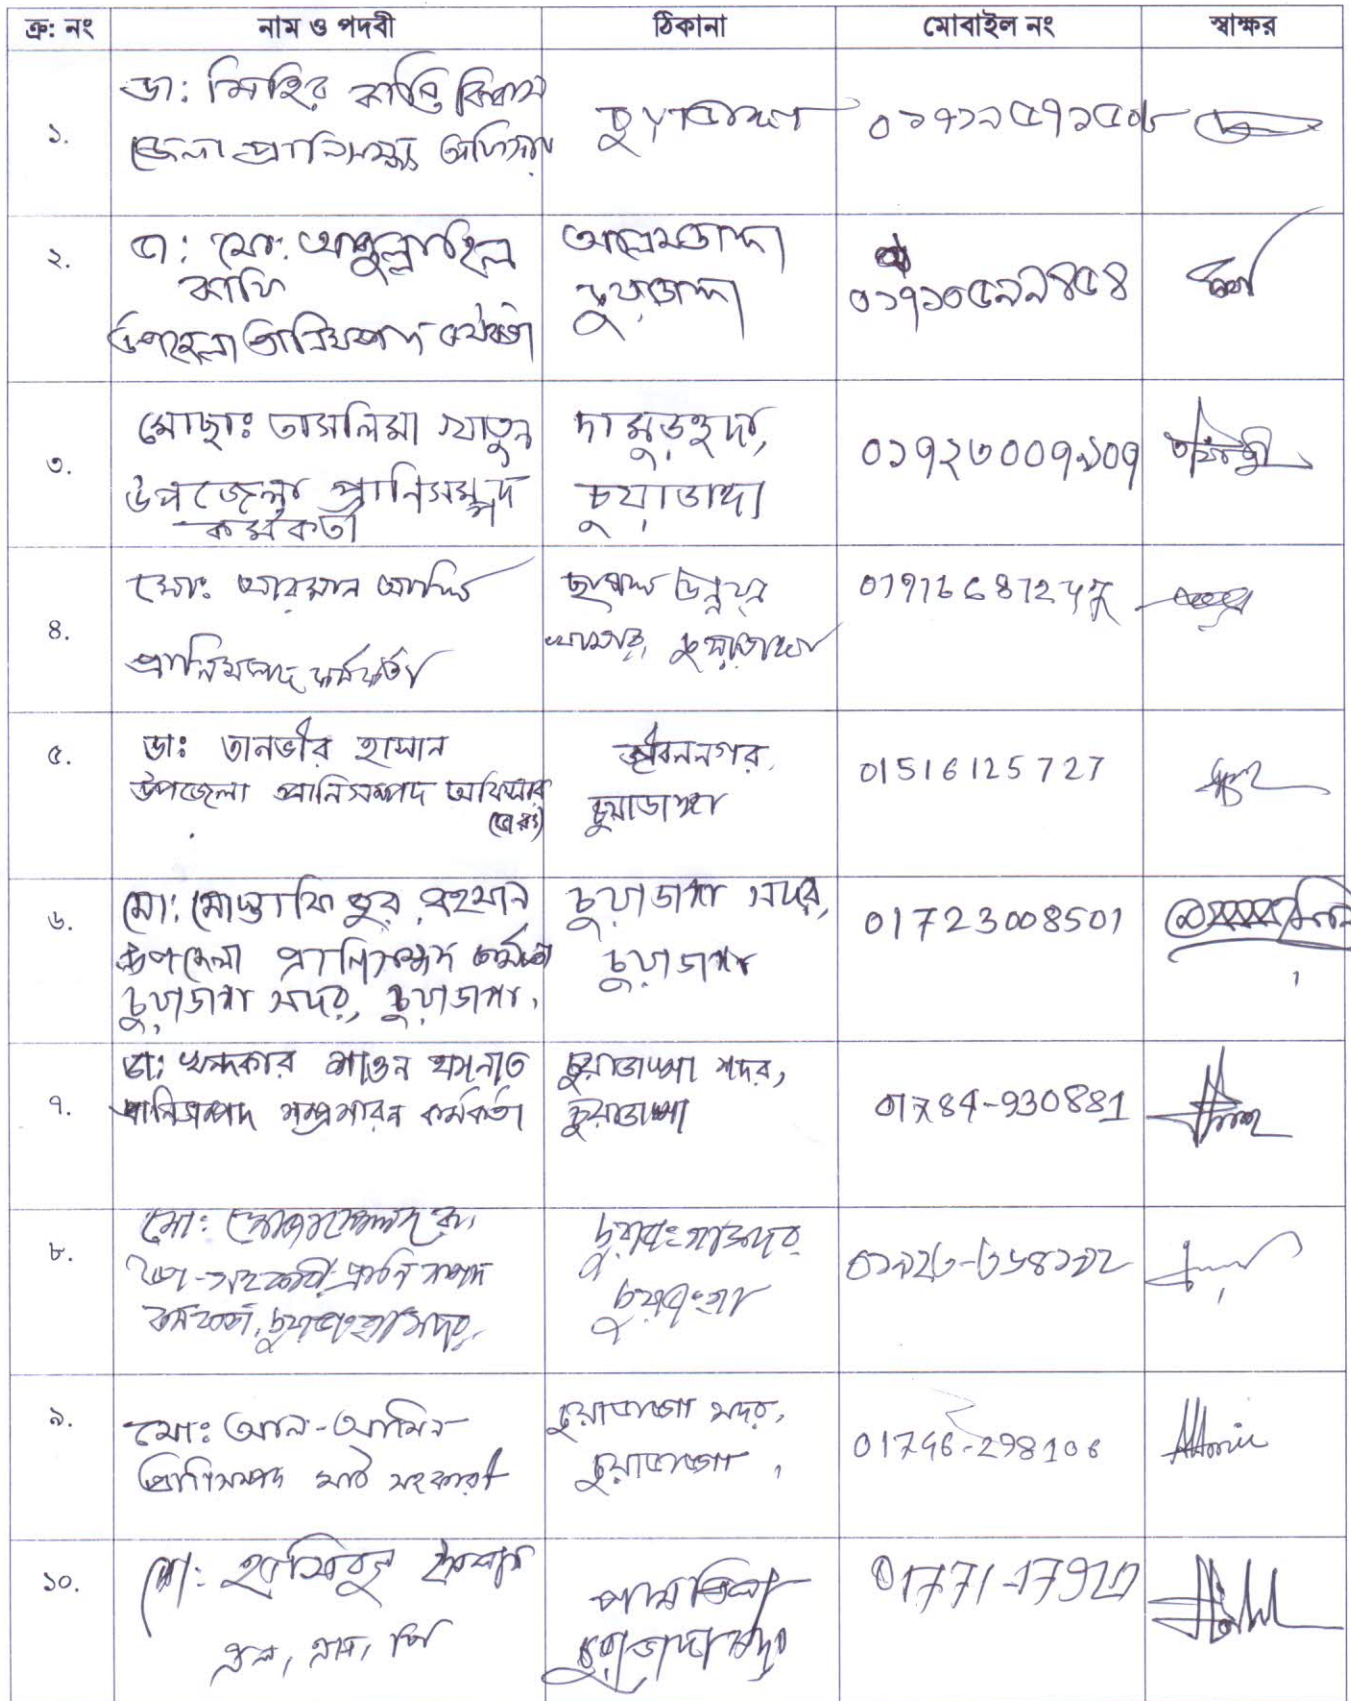 ক্র: নং নাম ও পদবী ঠিকানা মোবাইল নং স্বাক্ষর
১.
ডা: মিহির কান্তি বিশ্বাস
জেলা প্রানিসম্পদ অফিসার
চুয়াডাঙ্গা
২.
ডা: মো: আব্দুল্লাহিল
কাফি
উপজেলা প্রানিসম্পদ কর্মকর্তা
আলমডাঙ্গা
চুয়াডাঙ্গা
০১৭১০৫৯৯৪৫৪
৩.
মোছাঃ তাসলিমা খাতুন
উপজেলা প্রানিসম্পদ
কর্মকর্তা
দামুড়হুদা,
চুয়াডাঙ্গা
০১৭২৩০০৭৯০৭
৪.
মোঃ আরমান আলি
প্রানিসম্পদ কর্মকর্তা
ছাগল উন্নয়ন
খামার, চুয়াডাঙ্গা
৫.
ডাঃ তানভীর হাসান
উপজেলা প্রানিসম্পদ অফিসার
জীবননগর,
চুয়াডাঙ্গা
01516125727
৬.
মো: মোস্তাফিজুর রহমান
উপজেলা প্রানিসম্পদ কর্মকর্তা
চুয়াডাঙ্গা সদর, চুয়াডাঙ্গা,
চুয়াডাঙ্গা সদর,
চুয়াডাঙ্গা
01723008501
৭.
ডা: খন্দকার শাওন হাসনাত
প্রানিসম্পদ সম্প্রসারন কর্মকর্তা
চুয়াডাঙ্গা সদর,
চুয়াডাঙ্গা
01784-930881
৮.
মো:
উপ-সহকারী প্রানি সম্পদ
কর্মকর্তা, চুয়াডাংগা সদর,
চুয়াডাংগা সদর
চুয়াডাংগা
৯.
মোঃ আল-আমিন
প্রাণিসম্পদ মাঠ সহকারী
চুয়াডাঙ্গা সদর,
চুয়াডাঙ্গা,
01746-298106
১০.
মো: হাসিবুল ইসলাম
এল, এফ, পি
চুয়াডাঙ্গা সদর